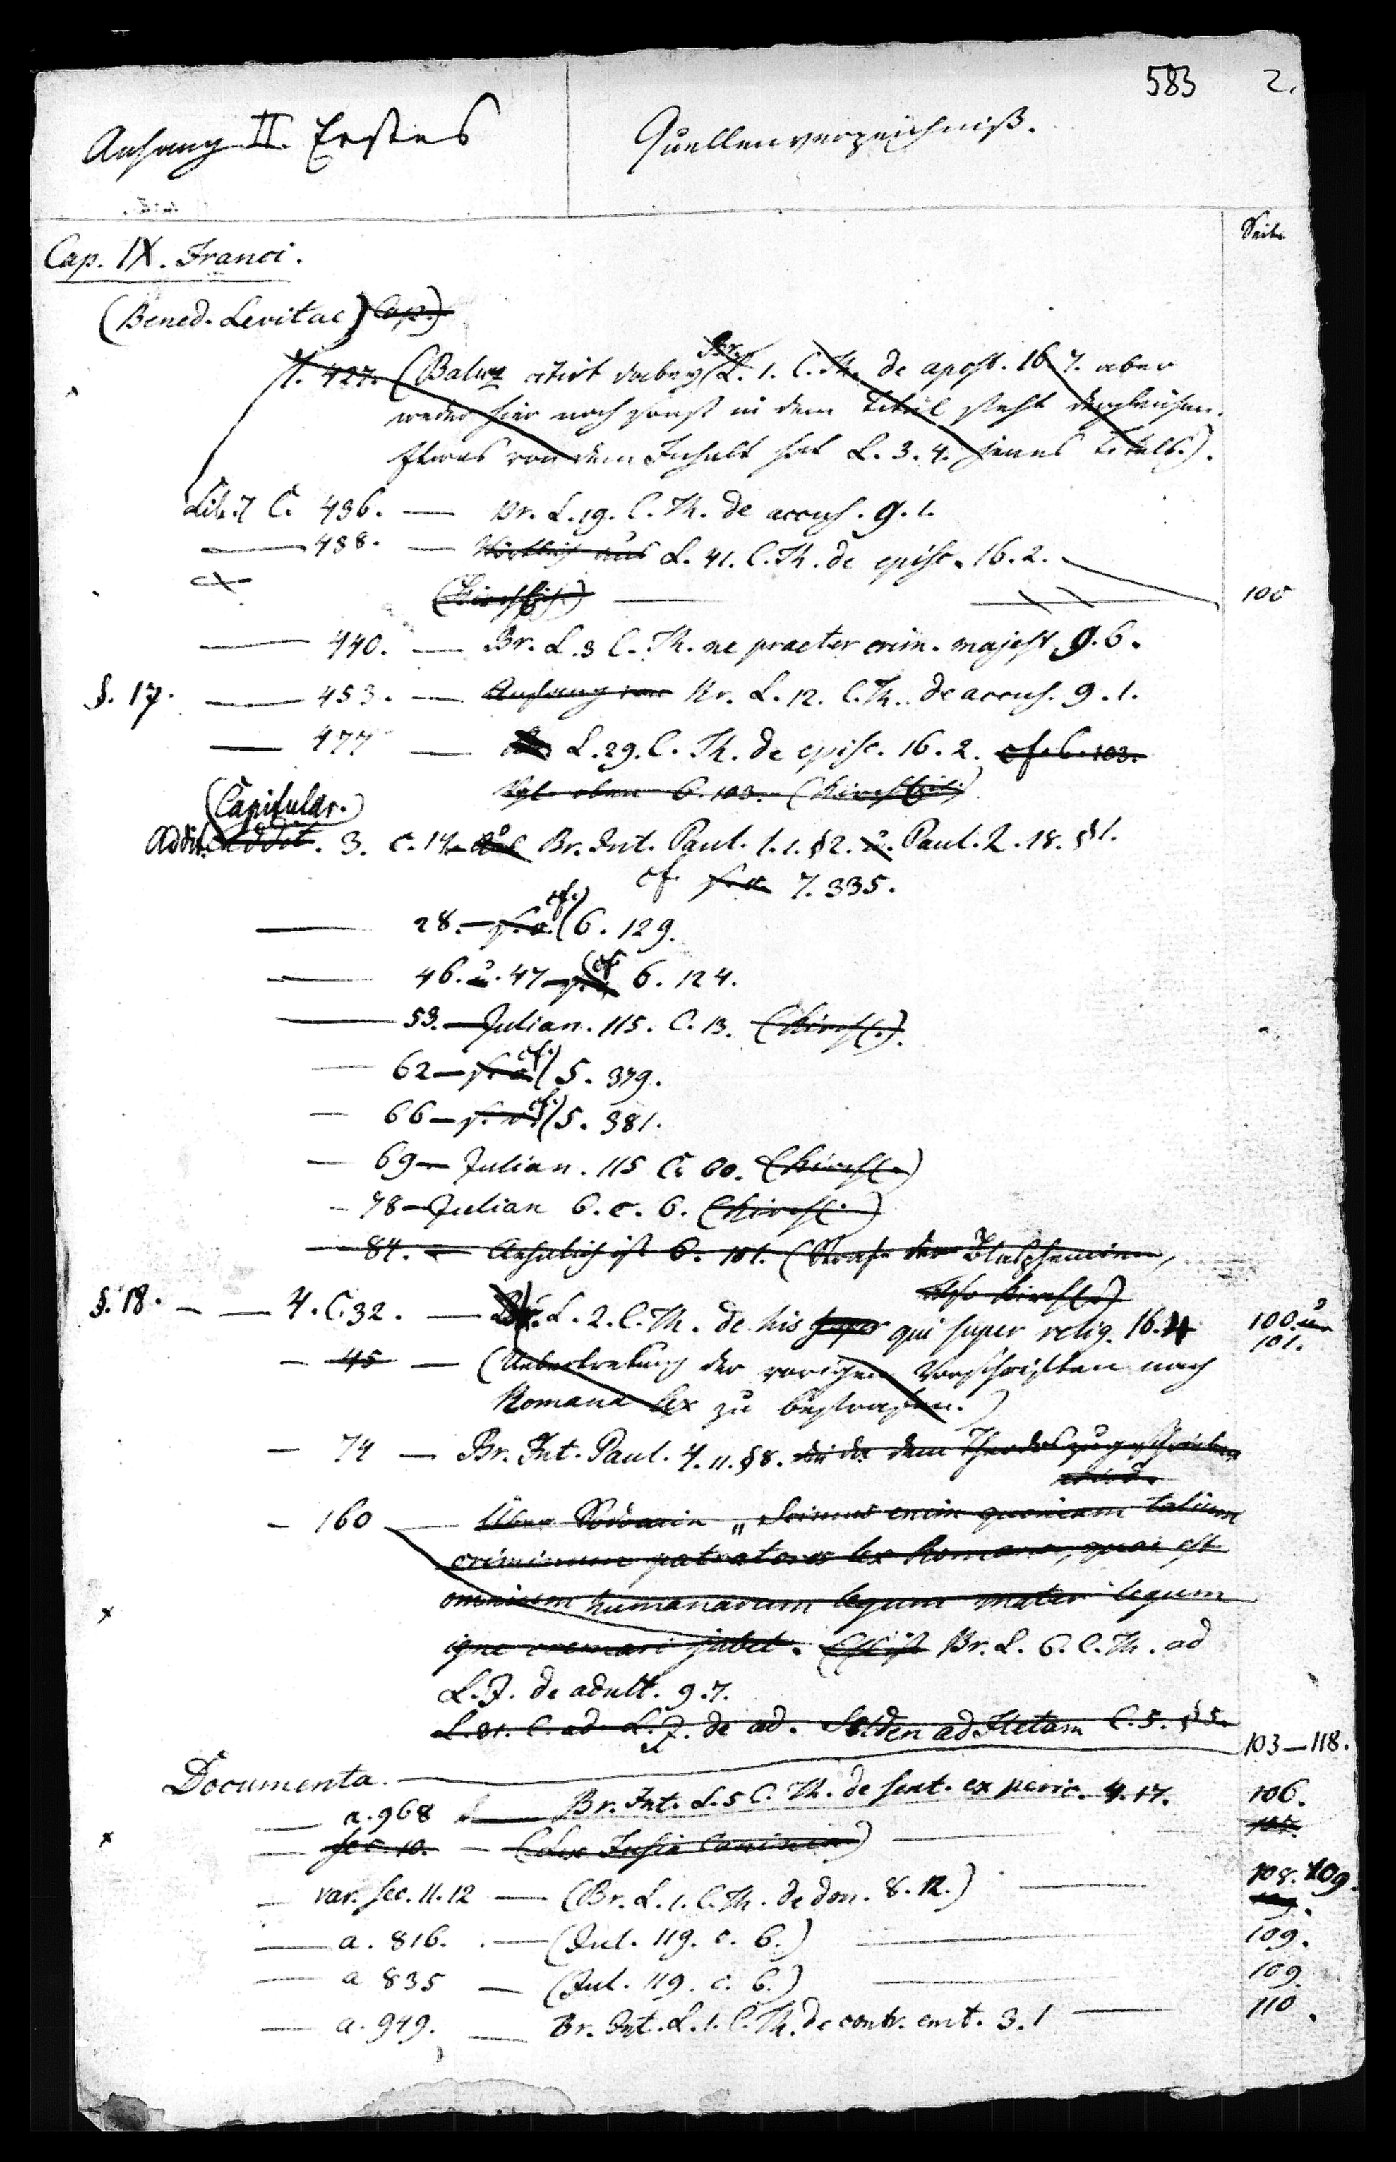 583 2.
Anhang II. Erstes Quellenverzeichniß.
Seite
Cap. IX. Franci.
(Bened. Levitae) Cap.)
7. 427. (Baluz citirt dabey (Br. L. 1. C. Th. de apost. 16. 7. aber
weder hier noch sonst in dem Titel steht dergleichen.
Etwas von dem Inhalt hat L. 3. 4. jenes Titels.).
Lib. 7 C. 436. — Br. L. 19. C. Th. de accus. 9. 1.
— 438. — Wörtlich aus L. 41. C. Th. de episc. 16. 2.
(Kirchlich.) — 100
— 440. — Br. L. 3 C. Th. ne praeter crim. majest. 9. 6.
§. 17. — 453. — Anfang von Br. L. 12. C. Th. de accus. 9. 1.
— 477 — L. 29. C. Th. de episc. 16. 2. cf. 6. 103.
Vgl. oben 6. 103. (Kirchlich)
(Capitular.)
Addit. Addit. 3. c. 14. Aus Br. Int. Paul. 1. 1. §2. u. Paul. 2. 18. §1.
cf. s. o. 7. 335.
— 28. — s. o. (cf.) 6. 129.
— 46. u. 47 — (cf. 6. 124.
— 53. — Julian. 115. C. 13. (Kirchl.).
— 62 — s. o. (cf.) 5. 379.
— 66 — s. o. (cf.) 5. 381.
— 69 — Julian. 115 C. 60. (Kirchl.)
— 78 — Julian 6. c. 6. (Kirchl.)
— 84. — Aehnlich ist 6. 101. (Strafe der Blasphemie,
also Kirchl.)
§. 18. — — 4. C. 32. — Br. L. 2. C. Th. de his super qui super relig. 16. 4 100. u.
101.
— 45 — (Uebertretung der vorigen Vorschriften nach
Romana lex zu bestrafen.)
— 74 — Br. Int. Paul. 4. 11. §8. die dem Theodos zugeschrieben
wird.
— 160 — Über Sodomie „Scimus enim quoniam talium
criminum patratores lex Romana, quae est
omnium humanarum legum mater legum
igne cremari jubet. Es ist Br. L. 6. C. Th. ad
L. J. de adult. 9. 7.
L. 31. C. ad L. J. de ad. Selden ad Fletam C. 5. §5.
Documenta. — 103—118.
— a. 968 — Br. Int. L. 5 C. Th. de sent. ex peric. 4. 17. 106.
— sec. 10. — (Lex Fusia Caninia) — 107.
— var. sec. 11. 12 — (Br. L. 1. C. Th. de don. 8. 12.) — 108. 109.
— a. 816. — (Jul. 119. c. 6.) — 109.
— a 835 — (Jul. 119. c. 6.) — 109.
— a. 949. — Br. Int. L. 1. C. Th. de contr. emt. 3. 1 — 110.